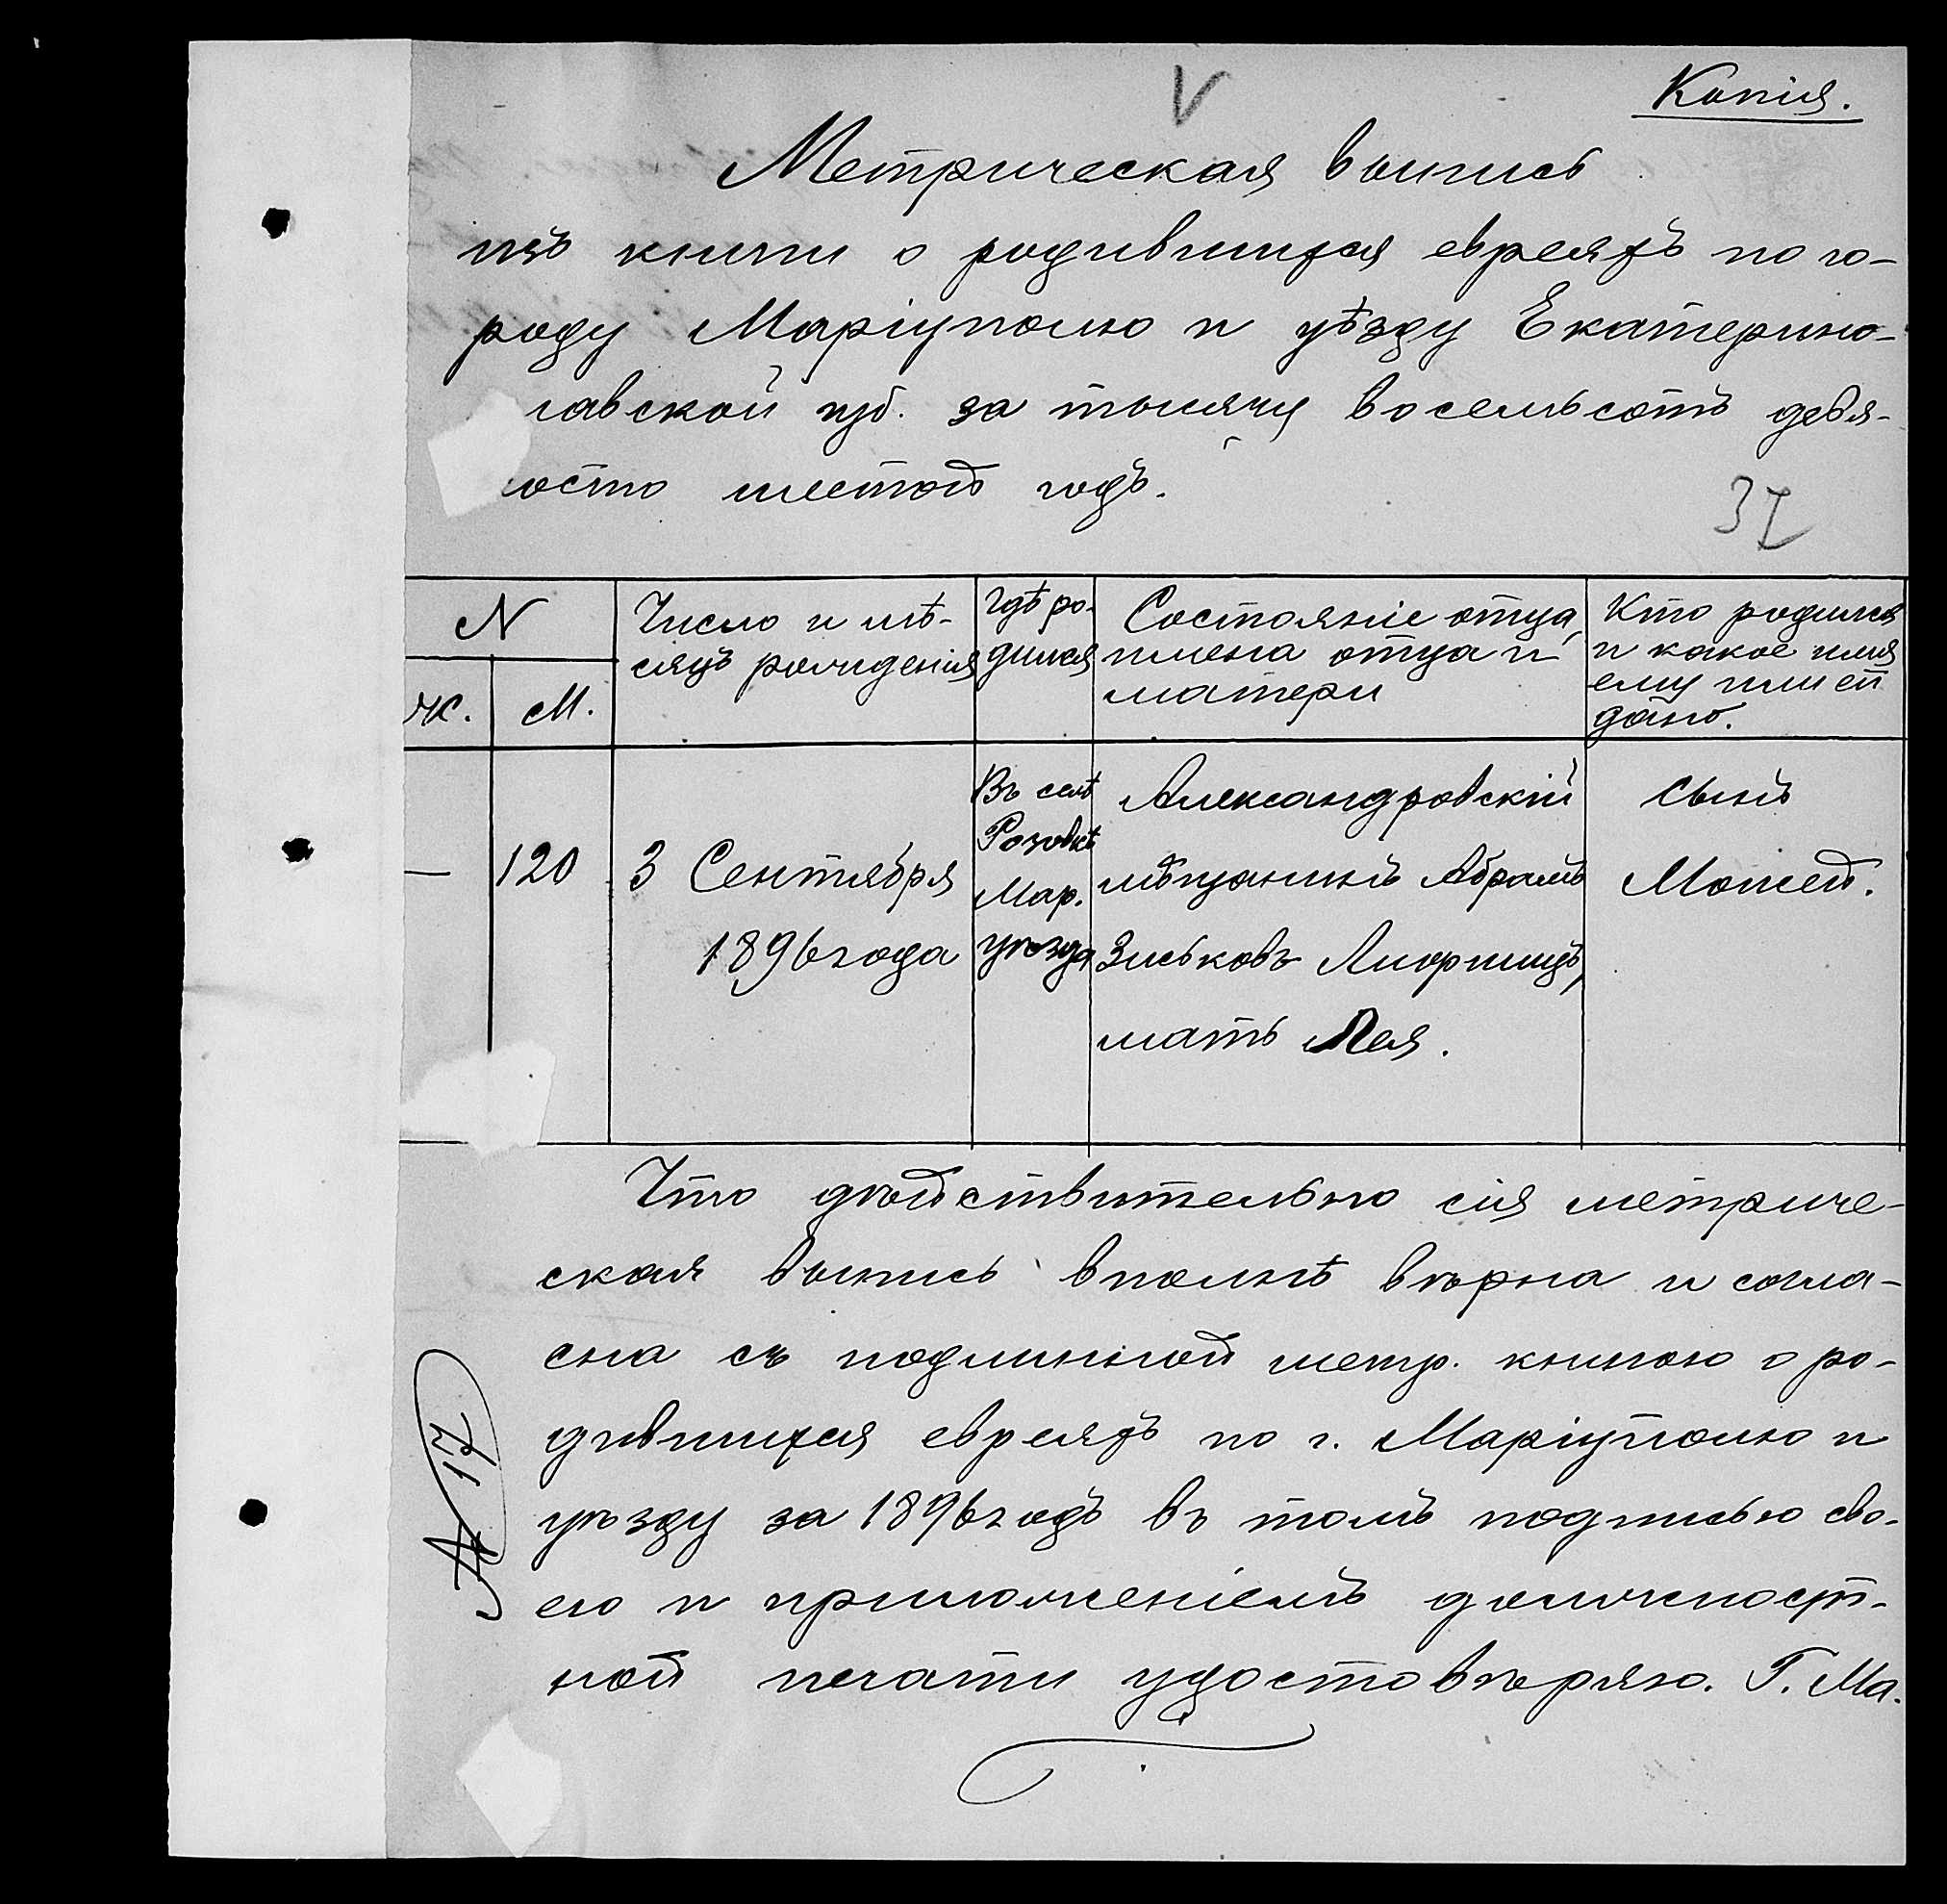 V
Копія.
Метрическая выпись
изъ книги о родившихся евреяхъ по го-
роду Маріуполю и уѣзду Екатерино-
лавской губ. за тысячу восемьсотъ девя-
осто шестой годъ.
37
N
Число и мѣ-
сяцъ рожденія
Гдѣ ро-
дился
Состояніе отца,
имена отца и
матери
Кто родился
и какое имя
ему или ей
дано.
ж.
М.
—
120
3 Сентября
1896 года
Въ селѣ
Розовкѣ
Мар.
уѣзда
Александровскій
мѣщанинъ Абрамъ
Зиськовъ Лифшицъ,
мать Лея.
Сынъ
Моисей.
Что дѣйствительно сія метриче-
ская выпись вполнѣ вѣрна и согла-
сна съ подлинной метр. книгою о ро-
дившихся евреяхъ по г. Маріуполю и
уѣзду за 1896 годъ въ томъ подписью сво-
ею и приложеніемъ должност-
ной печати удостовѣряю. Г. Ма-
№ 17